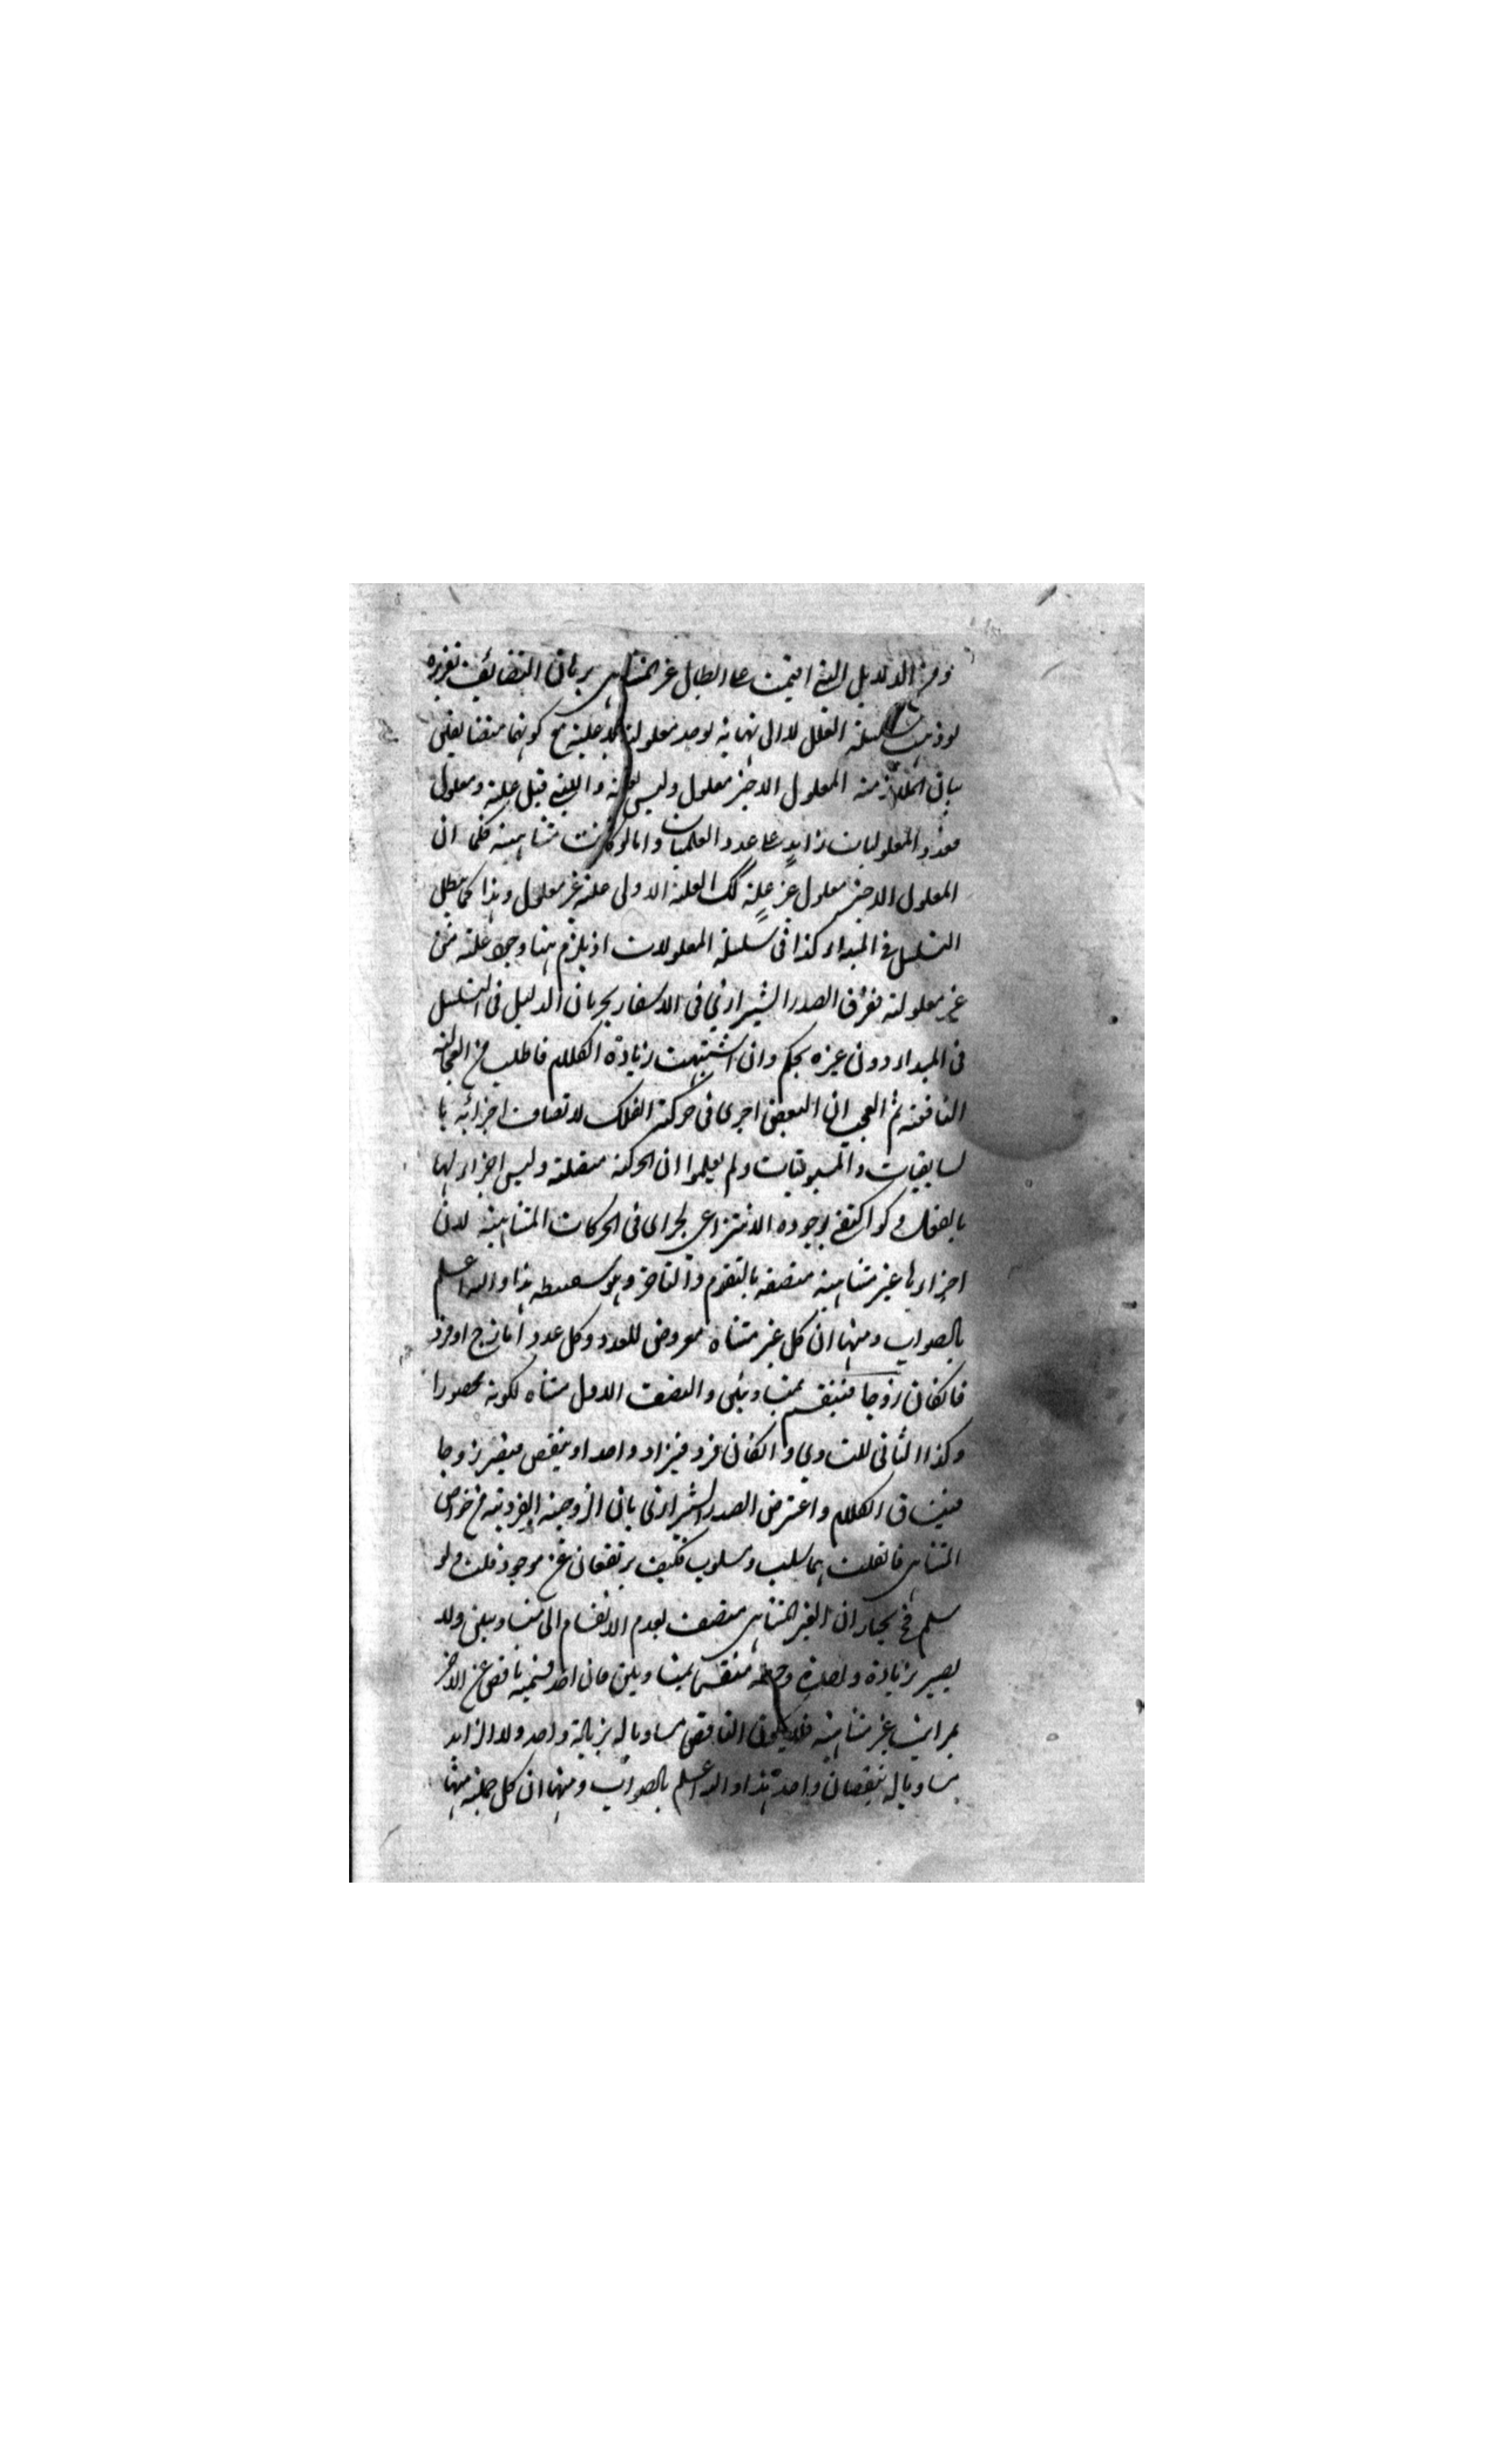 ومن الدلايل التي اقيمت على ابطال غير المتناهي برهان التضائف تقريره
لو ذهبت سلسلة العلل لا الى نهاية لوجد معلولية بلا علية مع كونهما متضايفين
بيان الملازمة المعلول الاخير معلول وليس بعلة والتي قبل علة ومعلول
فعدد المعلوليات زايد على عدد العليات واما لو كانت متناهية فكما ان
المعلول الاخير معلول غير علة كك العلة الاولى علة غير معلول وهذا كما يبطل
التسلسل في المبدا وكذا في سلسلة المعلولات اذ يلزم هنا وجود علة من
غير معلولية ففرق الصدر الشيرازي في الاسفار بجريان الدليل في التسلسل
في المبداء دون غيره تحكم وان اشتهيت زيادة الكلام فاطلب من العجالة
النافعة ثم العجب ان البعض اجرى في حركة الفلك لاتصاف اجزائه با
لسابقيات والمسبوقيات ولم يعلموا ان الحركة متصلة وليس اجزاء لها
بالفعل ولو اكتفي بوجوده الانتزاعي لجرى في الحركات المتناهية لان
اجزاءها غير متناهية متصفة بالتقدم والتاخر وهو سفسطة هذا والله اعلم
بالصواب ومنها ان كل غير متناه معروض للعدد وكل عدد اما زوج او فرد
فان كان زوجا فينقسم بمتساويين والنصف الاول متناه لكونه محصورا
وكذا الثاني للتساوي وان كان فرد فيزاد واحد او ينقص فيصير زوجا
فينساق الكلام واعترض الصدر الشيرازي بان الزوجية الفردية من خواص
المتناهي فان قلت هما سلب وسلوب فكيف يرتفعان عن موجود قلت ولو
سلم فح يختار ان الغير المتناهي متصف بعدم الانقسام الى متساويين ولا
يصير بزيادة واحدة وحطه منقسما بمتساويين فان احد قسميه ناقص عن الاخر
بمراتب غير متناهية فلا يكون الناقص مساويا له بزيادة واحد ولا الزايد
مساويا له بنقصان واحد هذا والله اعلم بالصواب ومنها ان كل جملة منها